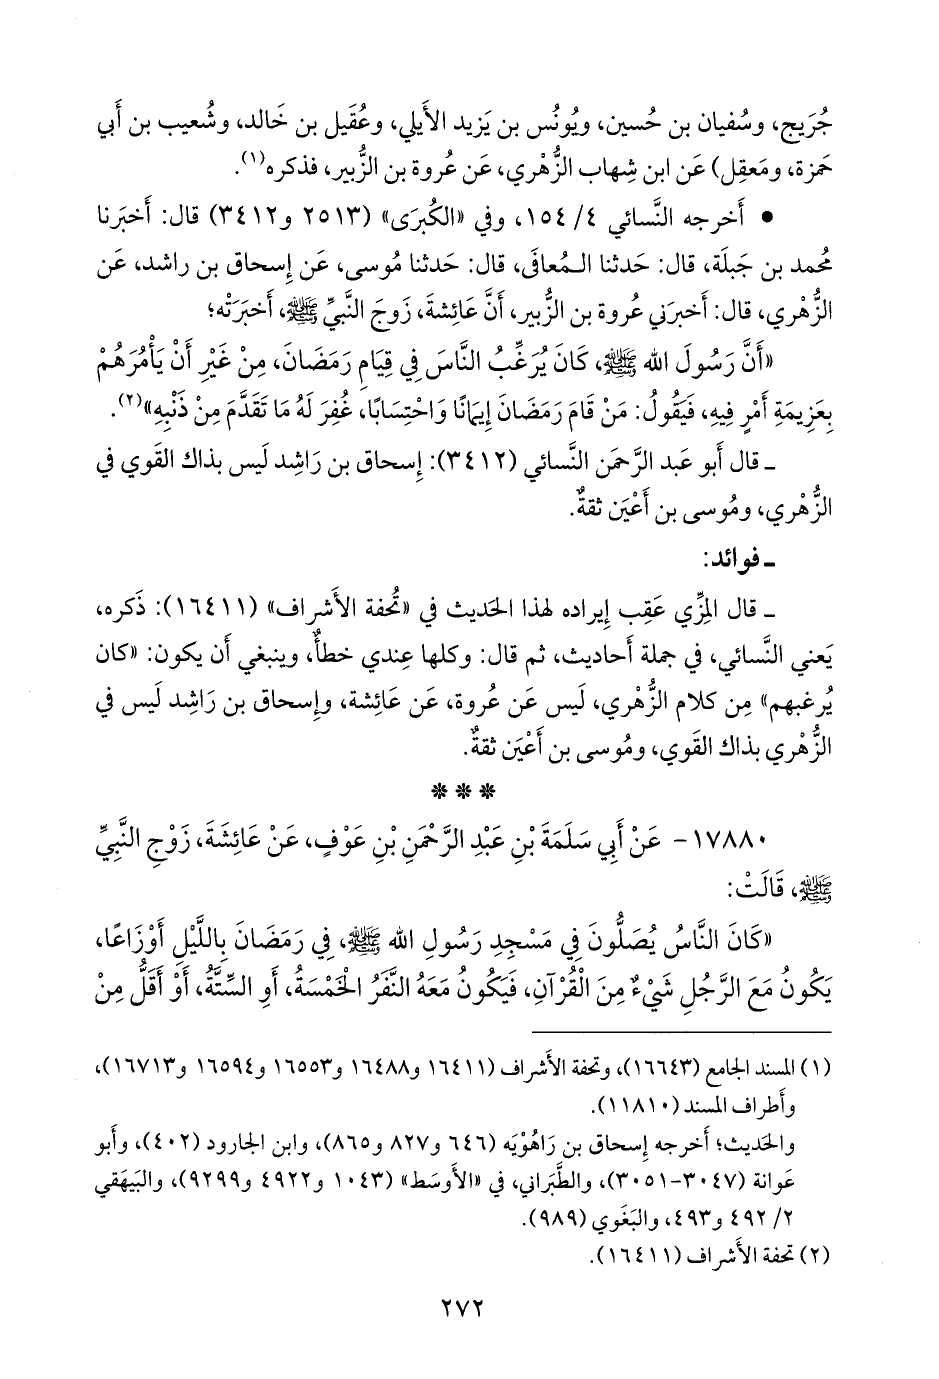 جُرَيج، وسُفيان بن حُسين، ويُونُس بن يَزيد الأَيلي، وعُقَيل بن خَالد، وشُعيب بن أَبي
حَمزة، ومَعقِل) عَن ابن شِهاب الزُّهْري، عَن عُروة بن الزُّبير، فذكره(١).
• أَخرجه النَّسائي ٤/ ١٥٤، وفي «الكُبرَى» (٢٥١٣ و٣٤١٢) قال: أَخبَرنا
مُحمد بن جَبلَة، قال: حَدثنا المُعافَى، قال: حَدثنا مُوسى، عَن إِسحاق بن راشد، عَن
الزُّهْري، قال: أَخبرَني عُروة بن الزُّبير، أَنَّ عَائِشةَ، زَوجَ النَّبيِّ ﷺ، أَخبَرَتْه؛
«أَنَّ رَسُولَ الله ﷺ، كَانَ يُرَغِّبُ النَّاسَ فِي قِيَامِ رَمَضَانَ، مِنْ غَيْرِ أَنْ يَأْمُرَهُمْ
بِعَزِيمَةِ أَمْرٍ فِيهِ، فَيَقُولُ: مَنْ قَامَ رَمَضَانَ إِيمَانًا وَاحْتِسَابًا، غُفِرَ لَهُ مَا تَقَدَّمَ مِنْ ذَنْبِهِ»(٢).
ـ قال أَبو عَبد الرَّحمَن النَّسائي (٣٤١٢): إِسحاق بن رَاشِد لَيس بذاك القَوي في
الزُّهْري، ومُوسى بن أَعْيَن ثقةٌ.
ـ فوائد:
ـ قال المِزِّي عَقِب إِيراده لهذا الحَديث في «تُحفة الأَشراف» (١٦٤١١): ذَكره،
يَعني النَّسائي، في جملة أَحاديث، ثم قال: وكلها عِندي خطأٌ، وينبغي أَن يكون: «كان
يُرغبهم» مِن كلام الزُّهْري، لَيس عَن عُروة، عَن عَائِشة، وإِسحاق بن رَاشِد لَيس في
الزُّهْري بذاك القَوي، ومُوسى بن أَعْيَن ثقةٌ.
* * *
١٧٨٨٠ - عَنْ أَبِي سَلَمَةَ بْنِ عَبْدِ الرَّحْمَنِ بْنِ عَوْفٍ، عَنْ عَائِشَةَ، زَوْجِ النَّبِيِّ
ﷺ، قَالَتْ:
«كَانَ النَّاسُ يُصَلُّونَ فِي مَسْجِدِ رَسُولِ الله ﷺ، فِي رَمَضَانَ بِاللَّيْلِ أَوْزَاعًا،
يَكُونُ مَعَ الرَّجُلِ شَيْءٌ مِنَ الْقُرْآنِ، فَيَكُونُ مَعَهُ النَّفَرُ الْخَمْسَةُ، أَوِ السِّتَّةُ، أَوْ أَقَلُّ مِنْ
(١) المسند الجامع (١٦٦٤٣)، وتحفة الأَشراف (١٦٤١١ و١٦٤٨٨ و١٦٥٥٣ و١٦٥٩٤ و١٦٧١٣)،
وأَطراف المسند (١١٨١٠).
والحَديث؛ أَخرجه إِسحاق بن رَاهُوْيَه (٦٤٦ و٨٢٧ و٨٦٥)، وابن الجارود (٤٠٢)، وأَبو
عَوانة (٣٠٤٧-٣٠٥١)، والطَّبَراني، في «الأَوسَط» (١٠٤٣ و٤٩٢٢ و٩٢٩٩)، والبَيهَقي
٢/ ٤٩٢ و٤٩٣، والبَغَوي (٩٨٩).
(٢) تحفة الأَشراف (١٦٤١١).
٢٧٢